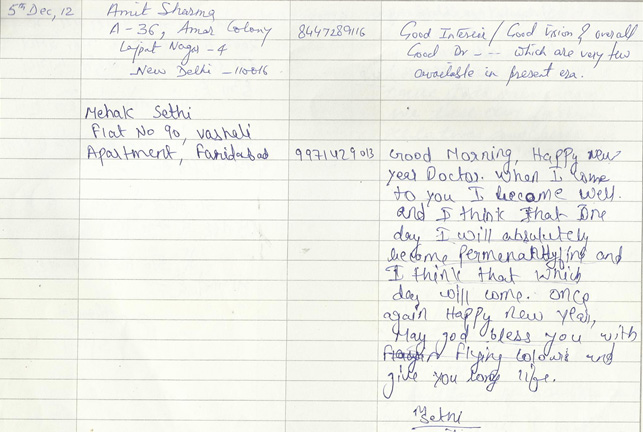 5th Dec, 12 Amit Sharma
A-36, Amar Colony 8447289116 Good Interior / Good Vision & overall
Lajpat Nagar-4 Good Dr - - - which are very few
New Delhi -110016 available in present era.
Mehak Sethi
Flat No 90, vashali
Apartment, Faridabad 9971429013 Good Morning, Happy new
year Doctor. when I come
to you I become well.
and I think that One
day I will absolutely
become permenantly fine and
I think that which
day will come. once
again Happy new year,
May god bless you with
flying colours and
give you long life.
MSethi